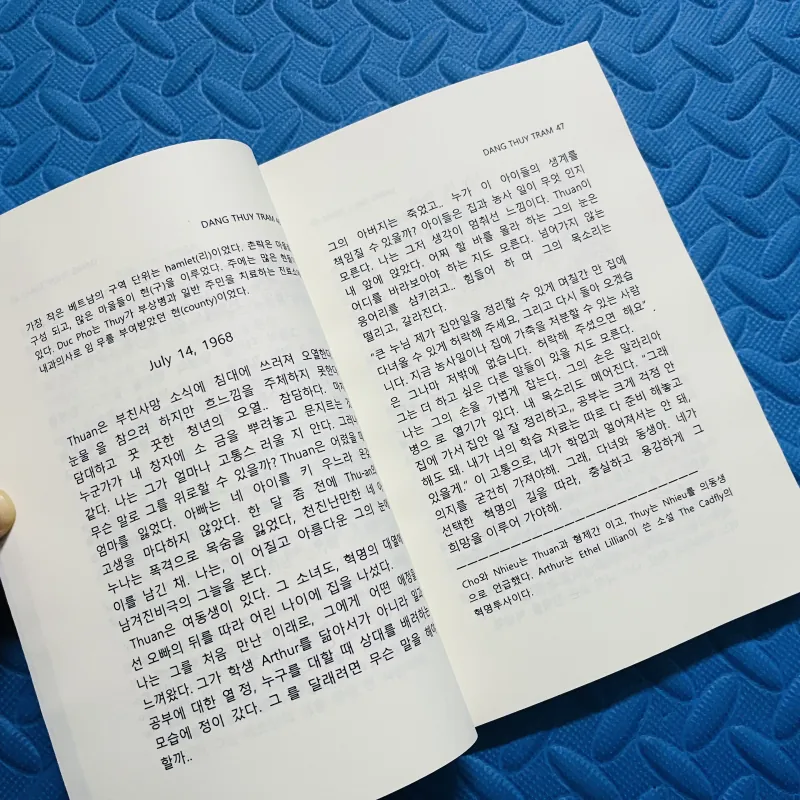 DANG THUY TRAM
가장 작은 베트남의 구역 단위는 hamlet(리)이었다. 촌락은 마을로
구성 되고, 많은 마을들이 현(구)을 이루었다. 주에는 많은 현들이
있다. Duc Pho는 Thuy가 부상병과 일반 주민을 치료하는 진료소
내과의사로 임 무를 부여받았던 현(county)이었다.
July 14, 1968
Thuan은 부친사망 소식에 침대에 쓰러져 오열한다.
눈물 을 참으려 하지만 흐느낌을 주체하지 못한다.
담대하고 꿋 꿋한 청년의 오열.. 참담하다. 마치
누군가가 내 창자에 소 금을 뿌려놓고 문지르는 것
같다. 나는 그가 얼마나 고통스 러울 지 안다. 그래서
무슨 말로 그를 위로할 수 있을까? Thuan은 어렸을 때
엄마를 잃었다. 아빠는 네 아이를 키 우느라 온갖
고생을 마다하지 않았다. 한 달 좀 전에 Thuan의
누나는 폭격으로 목숨을 잃었다, 천진난만한 네 아
이를 남긴 채. 나는, 이 어질고 아름다운 그의 눈에
남겨진비극의 그늘을 본다.
Thuan은 여동생이 있다. 그 소녀도, 혁명의 대열에
선 오빠의 뒤를 따라 어린 나이에 집을 나섰다.
나는 그를 처음 만난 이래로, 그에게 어떤 애정을
느껴왔다. 그가 학생 Arthur를 닮아서가 아니라 일과
공부에 대한 열 정, 누구를 대할 때 상대를 배려하는
모습에 정이 갔다. 그 를 달래려면 무슨 말을 해야
할까..
DANG THUY TRAM 47
그의 아버지는 죽었고.. 누가 이 아이들의 생계를
책임질 수 있을까? 아이들은 집과 농사 일이 무엇 인지
모른다. 나는 그저 생각이 멈춰선 느낌이다. Thuan이
내 앞에 앉았다. 어찌 할 바를 몰라 하는 그의 눈은
어디를 바라보아야 하는 지도 모른다. 넘어가지 않는
응어리를 삼키려고.. 힘들어 하 며 그의 목소리는
떨리고, 갈라진다.
“큰 누님 제가 집안일을 정리할 수 있게 며칠간 만 집에
다녀올 수 있게 허락해 주세요. 그리고 다시 돌아 오겠습
니다. 지금 농사일이나 집에 가축을 처분할 수 있는 사람
은 그나마 저밖에 없습니다. 허락해 주셨으면 해요”
그는 더 하고 싶은 다른 말들이 있을 지도 모른다.
나는 그의 손을 가볍게 잡는다. 그의 손은 말라리아
병으 로 열기가 있다. 내 목소리도 메어진다. “그래
집에 가서 집안 일 잘 정리하고,, 공부는 크게 걱정 안
해도 돼. 내가 너의 학습 자료는 따로 다 준비 해놓고
있을게.” 이 고통으로, 네가 학업과 멀어져서는 안 돼,
의지를 굳건히 가져야해. 그래, 다녀와 동생아. 네가
선택한 혁명의 길을 따라, 충실하고 용감하게 그
희망을 이루어 가야해.
Cho와 Nhieu는 Thuan과 형제간 이고, Thuy는 Nhieu를 의동생
으로 언급했다. Arthur는 Ethel Lillian이 쓴 소설 The Cadfly의
혁명투사이다.